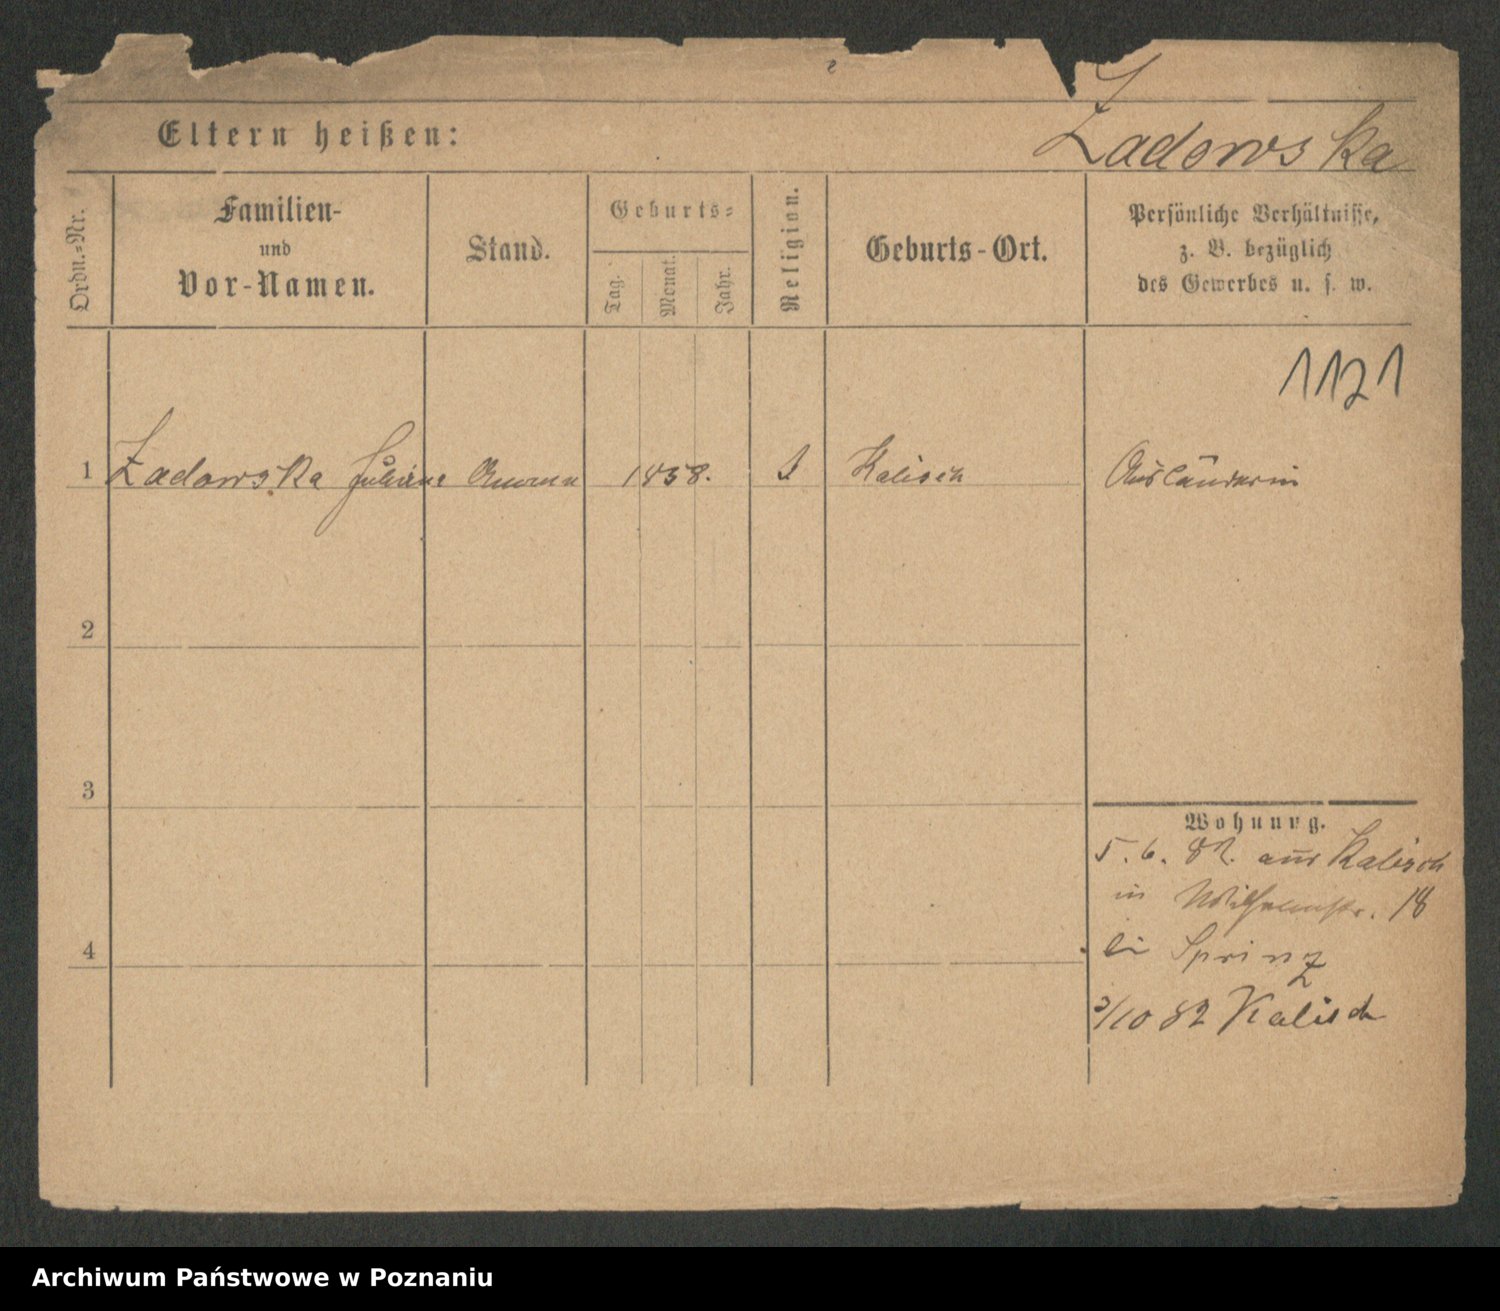 Zadowska
Eltern heißen:
Ordn.=Nr.
Familien-
und
Vor-Namen.
Stand.
Geburts=
Tag.
Monat.
Jahr.
Religion.
Geburts-Ort.
Persönliche Verhältnisse,
z. B. bezüglich
des Gewerbes u. s. w.
1121
1 Zadowska Juliane Amme 1858. Kalisch Ausländerin
2
3
4
Wohnung.
5. 6. 82. aus Kalisch
in Wilhelmstr. 18
bei Sprinz
2/10 82 Kalisch
Archiwum Państwowe w Poznaniu